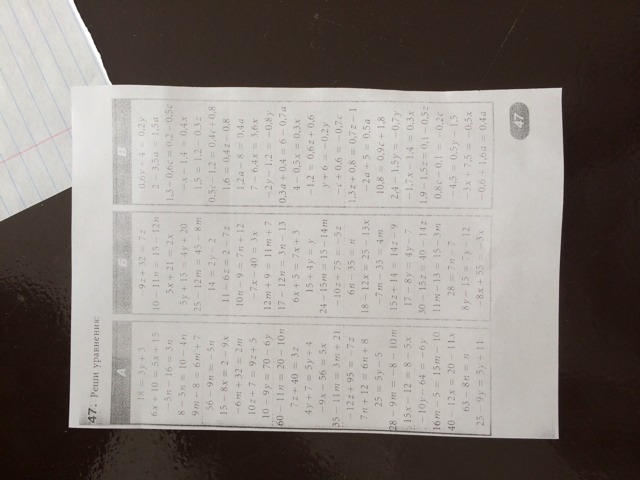 47. Реши уравнения:
А
18 = 3y + 3
6x + 10 = 5x + 15
-5n - 16 = 3n
8 - 5n = 10 - 4n
9m - 8 = 6m + 7
56 - 9n = -5n
15 - 8x = 2 - 9x
-6m + 32 = 2m
10z - 7 = 9z + 5
10 - 9y = 70 - 6y
60 - 11n = 20 - 10n
7z + 40 = 3z
4y + 7 = 5y + 4
-9x - 56 = 5x
35 - 11m = 3m + 21
-12z + 95 = -7z
7n + 12 = 6n + 8
25 = 5y - 5
28 - 9m = -8 - 10m
15x - 12 = 8 - 5x
-10y - 64 = -6y
16m - 5 = 15m - 10
40 - 12x = 20 - 11x
63 - 8n = n
25 - 9y = 5y + 11
Б
-9z + 32 = 7z
10 - 11n = 15 - 12n
5x + 21 = 2x
5y + 15 = 4y + 20
25 - 12m = 45 - 8m
14 = 2y - 2
11 - 6z = 2 - 7z
10n + 9 = 7n + 12
-7x - 40 = 3x
12m + 9 = 11m + 7
17 - 12n = 3n - 13
6x + 5 = 7x + 3
15 + 4y = y
24 - 15m = 15 - 14m
-10z - 75 = -5z
6n - 35 = n
18 - 12x = 25 - 13x
-7m - 33 = 4m
15z + 14 = 14z - 9
17 - 8y = 4y - 7
30 - 15z = 40 - 14z
11m - 13 = 15 - 3m
28 = 7n - 7
8y - 15 = 7y - 12
-8x + 55 = -3x
В
0,6y + 4 = 0,2y
2 - 3,5a = 1,5a
1,3 - 0,6c = 0,2 - 0,5c
-x - 1,4 = 0,4x
1,5 = 1,2 - 0,3z
0,5c - 1,2 = 0,4c + 0,8
1,6 = 0,4z - 0,8
1,2a - 8 = 0,4a
7 - 6,4x = 3,6x
-2y - 1,2 = -0,8y
0,3a + 0,4 = 6 - 0,7a
4 - 0,5x = 0,3x
-1,2 = 0,6z + 0,6
y + 6 = -0,2y
-c + 0,6 = -0,7c
1,3z + 0,8 = 0,7z - 1
-2a + 5 = 0,5a
10,8 = 0,9c + 1,8
2,4 - 1,5y = -0,7y
-1,7x - 1,4 = 0,3x
1,9 - 1,5z = 0,1 - 0,5z
0,8c + 0,1 = -0,2c
-4,5 = 0,5y - 1,5
-3x + 7,5 = -0,5x
-0,6 + 1,6a = 0,4a
47